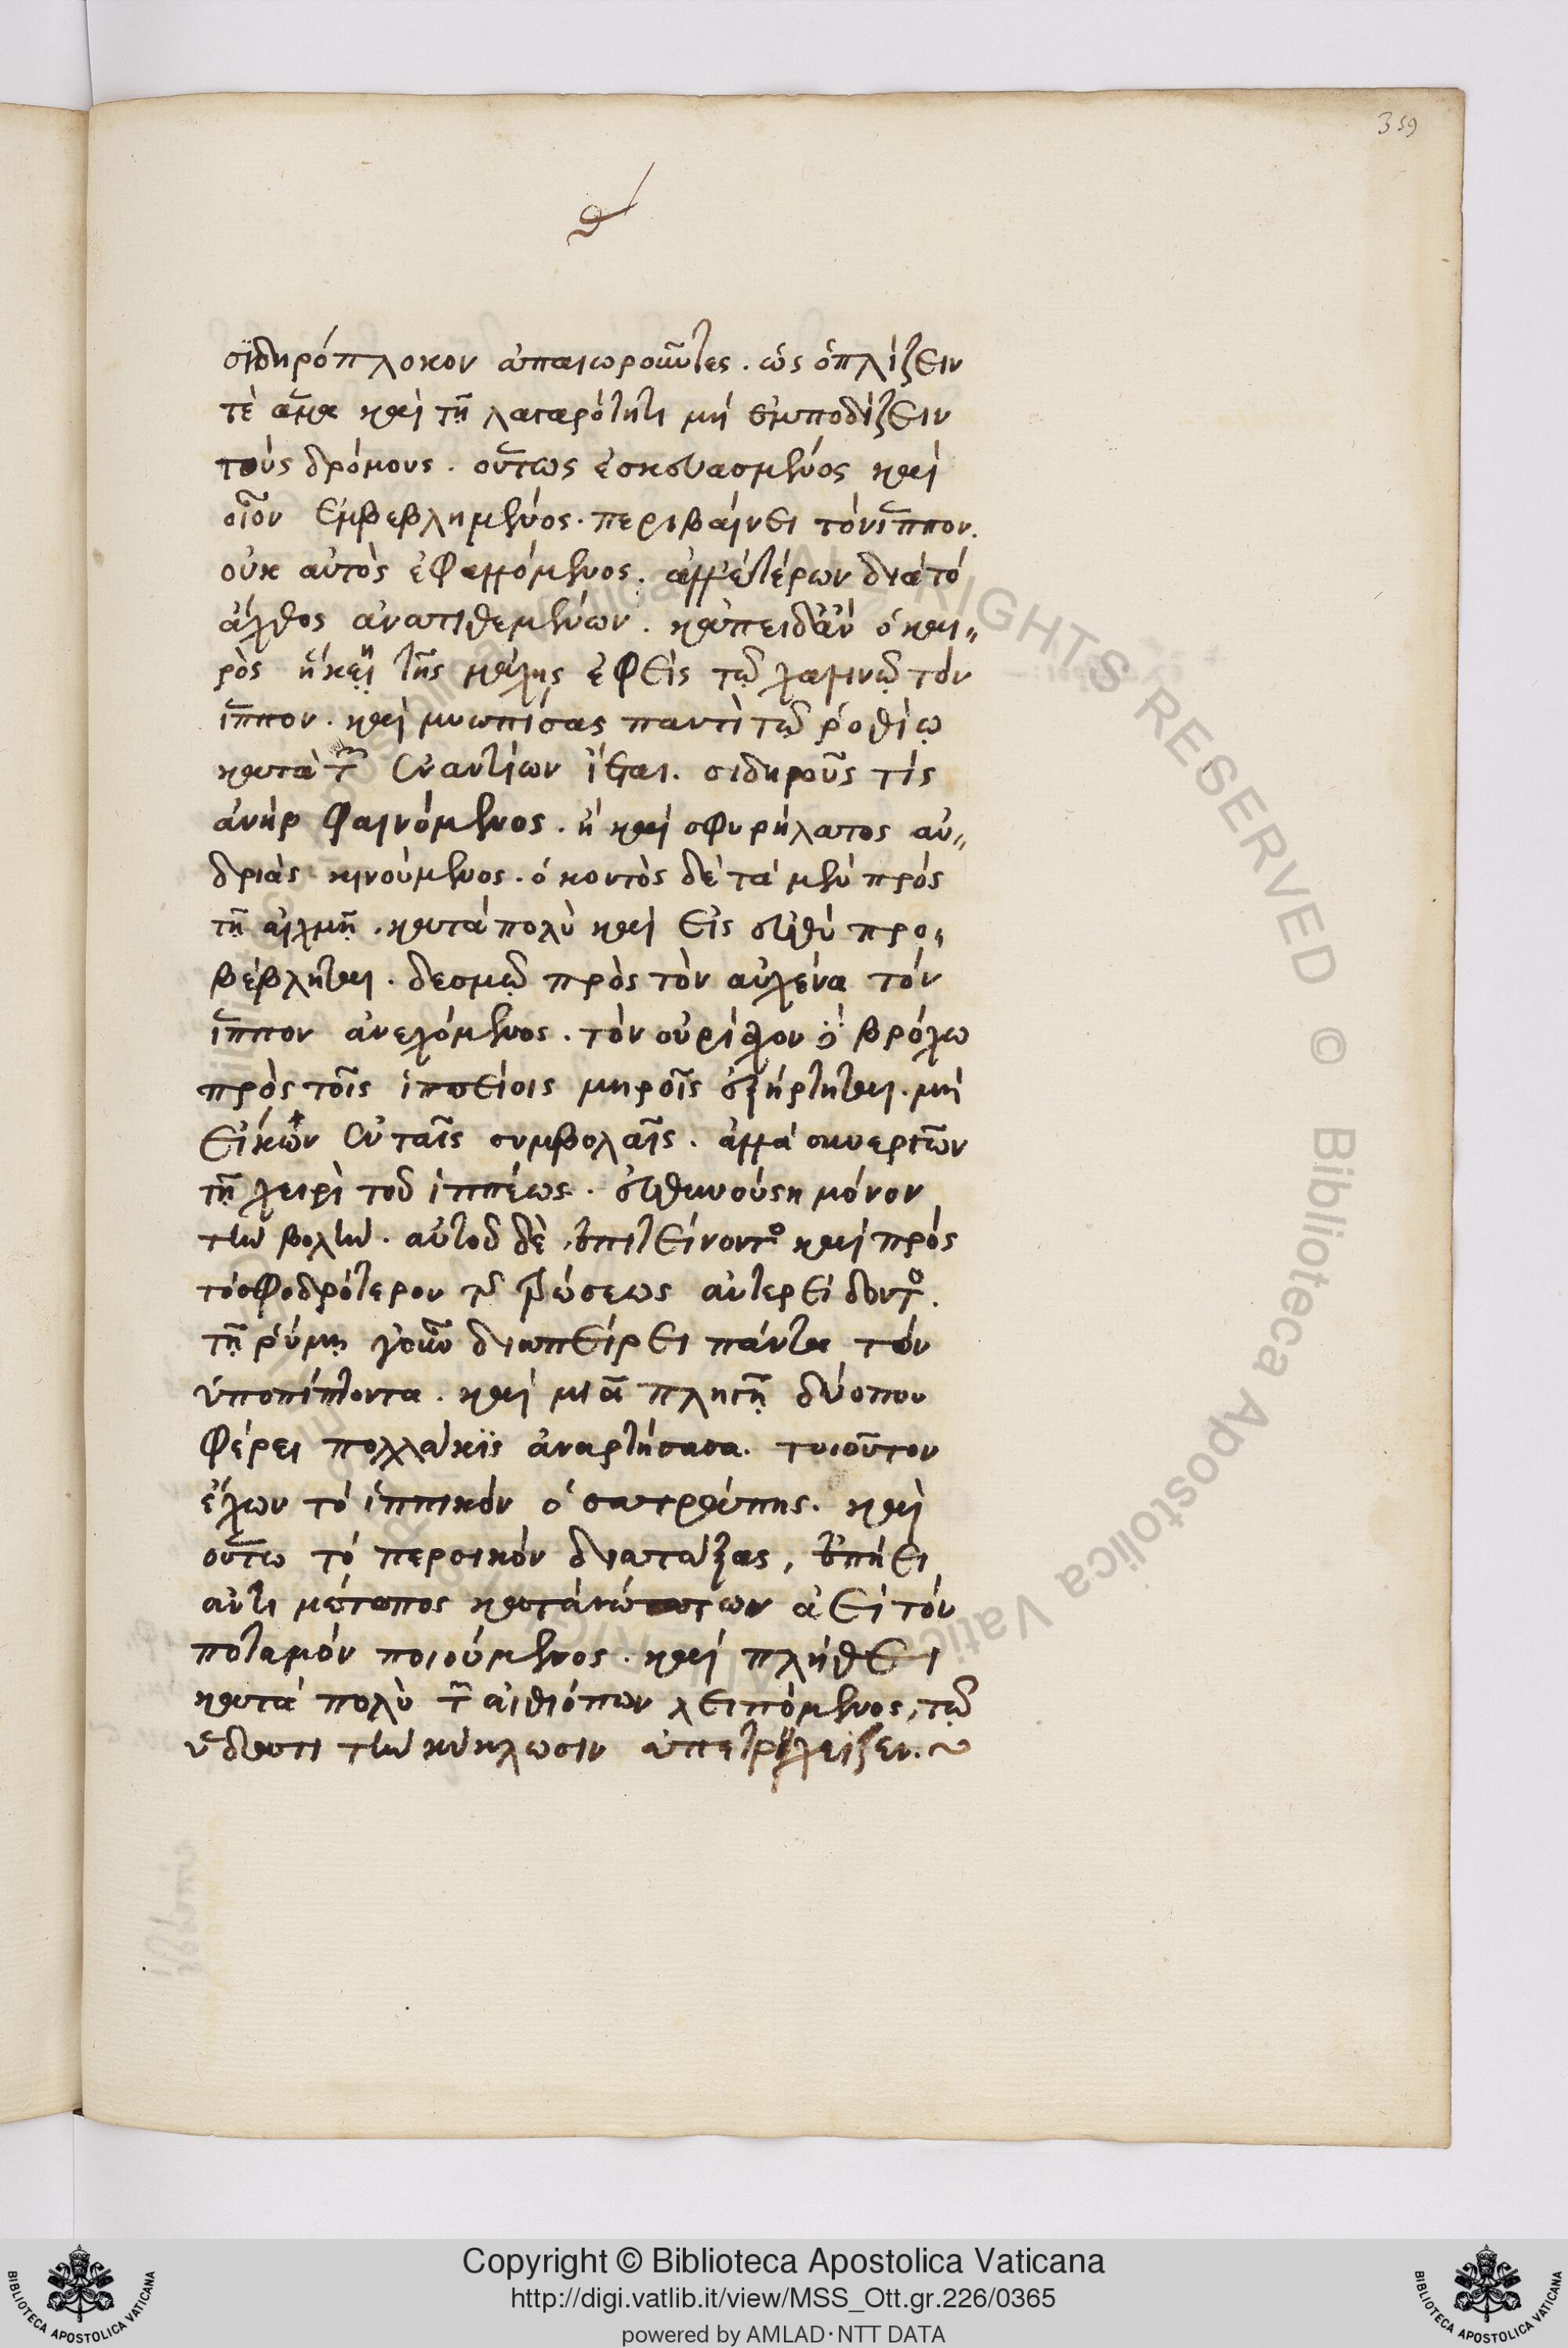 359
θ
σιδηρόπλοκον ἀπαιωροῦντες. ὡς ὁπλίζειν
τὲ ἅμα καὶ τῇ λαγαρότητι μὴ ἐμποδίζειν
τοὺς δρόμους. οὕτως ἐσκευασμένος καὶ
οἷον ἐμβεβλημένος. περιβαίνει τὸν ἵππον.
οὐκ αὐτὸς ἐφαλλόμενος. ἀλλ' ἑτέρων διὰ τὸ
ἄχθος ἀνατιθεμένων. κἀπειδὰν ὁ και-
ρὸς ἥκῃ τῆς μάχης ἐφεὶς τῷ χαλινῷ τὸν
ἵππον. καὶ μυωπίσας παντὶ τῷ ῥοθίῳ
κατὰ τῶν ἐναντίων ἵεται. σιδηροῦς τίς
ἀνὴρ φαινόμενος. ἢ καὶ σφυρήλατος ἀν-
δριὰς κινούμενος. ὁ κοντὸς δὲ τὰ μὲν πρὸς
τῇ αἰχμῇ. κατὰ πολὺ καὶ εἰς εὐθὺ προ-
βέβληται. δεσμῷ πρὸς τὸν αὐχένα τὸν
ἵππον ἀνεχόμενος. τὸν οὐρίαχον βρόχω
πρὸς τοῖς ἱππείοις μηροῖς ἐξήρτηται. μὴ
εἴκων ἐν ταῖς συμβολαῖς. ἀλλὰ συνεργῶν
τῇ χειρὶ τοῦ ἱππέως. εὐθυνούσῃ μόνον
τὴν βολὴν. αὐτοῦ δὲ ἐπιτείνοντος καὶ πρὸς
τὸ σφοδρότερον τῆς τρώσεως ἀντερείδοντος.
τῇ ῥύμῃ γοῦν διαπείρει πάντα τὸν
ὑποπίπτοντα. καὶ μιᾷ πληγῇ δύο που
φέρει πολλάκις ἀναρτήσασα. τοιοῦτον
ἔχων τὸ ἱππικὸν ὁ σατράπης. καὶ
οὕτω τὸ περσικὸν διατάξας, ἐπῄει
ἀντιμέτωπος κατὰ νώτων ἀεὶ τὸν
ποταμὸν ποιούμενος. καὶ πλήθει
κατὰ πολὺ τῶν αἰθιόπων λειπόμενος, τῷ
ὕδατι τὴν κύκλωσιν ἀπετείχιζεν. ~
Copyright © Biblioteca Apostolica Vaticana
http://digi.vatlib.it/view/MSS_Ott.gr.226/0365
powered by AMLAD·NTT DATA